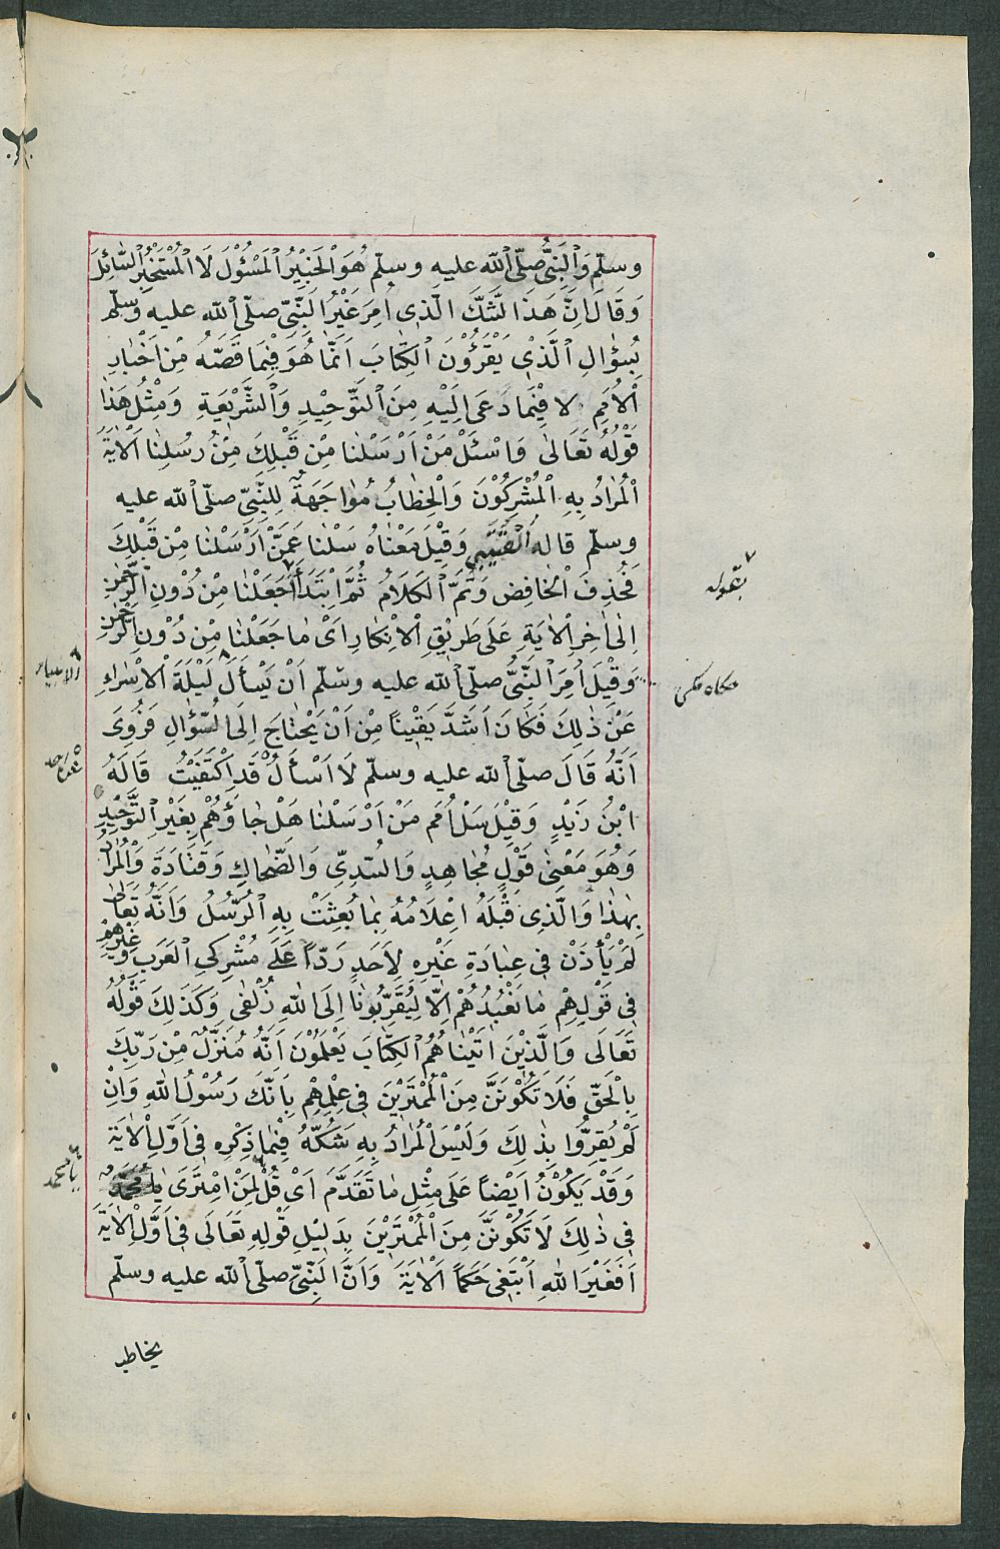 وسلّم وَالنَّبِىُّ صلّى الله عليه وسلّم هُوَ الْخَبِيْرُ الْمَسْؤُلَ لَا الْمُسْتَخْبِرُ السَّائِلَ
وَقَالَ اِنَّ هَذَا الشَّكَّ الَّذِى اُمِرَ غَيْرُ النَّبِىّ صلّى الله عليه وسلّم
بِسُؤَالِ الَّذِيْ يَقْرَؤُنَ الْكِتَابَ اَنَّمَا هُوَ فِيْمَا قَصَّهُ مِنْ اَخْبَارِ
الْاُمَمِ لا فِيْمَا دَعَى اِلَيْهِ مِنَ التَّوْحِيْدِ وَالشَّرِيْعَةِ وَمِثْلُ هَذَا
قَوْلُهُ تَعَالَى وَاسْئَلْ مَنْ اَرْسَلْنَا مِنْ قَبْلِكَ مِنْ رُسُلِنَا الْاٰيَةَ
الْمُرَادُ بِهِ الْمُشْرِكُوْنَ وَالْخِطَابُ مُوَاجَهَةً لِلنَّبِىّ صلّى الله عليه
وسلّم قاله القُتَيْبِى وَقِيْلَ مَعْنَاهُ سَلْنَا عَمَّنْ اَرْسَلْنَا مِنْ قَبْلِكَ
فَحُذِفَ الْخَافِض وَتَمَّ الْكَلَامُ ثُمَّ ابْتَدَأَ اَجَعَلْنَا مِنْ دُوْنِ الرَّحْمٰنِ
اِلَى اٰخِرِ الْاٰيَةِ عَلَى طَرِيْقِ الْاِنْكَارِ اَىْ مَا جَعَلْنَا مِنْ دُوْنِ الرَّحْمٰنِ
وَقِيْلَ اُمِرَ النَّبِىُّ صلّى الله عليه وسلّم اَنْ يَسْأَلَ لَيْلَةَ الْاِسْرَاءِ
عَنْ ذٰلِكَ فَكَانَ اَشَدَّ يَقِيْنًا مِنْ اَنْ يَحْتَاجَ اِلَى السُّؤَالِ فَرُوِىَ
اَنَّهُ قَالَ صلّى الله عليه وسلّم لَا اَسْأَلُ قَدِ اكْتَفَيْتُ قَالَهُ
ابْنُ زَيْدٍ وَقِيْلَ سَلْ اُمَم مَنْ اَرْسَلْنَا هَلْ جَاؤُهُمْ بِغَيْرِ التَّوْحِيْدِ
وَهُوَ مَعْنٰى قَوْلِ مُجَاهِدٍ وَالسّدِىّ وَالضَّحَاكِ وَقَتَادَةَ وَالْمُرَادُ
بِهٰذَا وَالَّذِى قَبْلَهُ اِعْلَامُهُ بِمَا بُعِثَتْ بِهِ الرُّسُلُ وَاَنَّهُ تَعَالَى
لَمْ يَأْذَنْ فِى عِبَادَةِ غَيْرِهِ لِاَحَدٍ رَدًّا عَلَى مُشْرِكِى الْعَرَبِ وَغَيْرِهِمْ
فِى قَوْلِهِمْ مَا نَعْبُدُهُمْ اِلَّا لِيُقَرِّبُونَا اِلَى اللهِ زُلْفٰى وَكَذَلِكَ قَوْلُهُ
تَعَالَى وَالَّذِيْنَ اٰتَيْنَاهُمُ الْكِتَابَ يَعْلَمُوْنَ اَنَّهُ مُنَزَّلٌ مِنْ رَبِّكَ
بِالْحَقِّ فَلَا تَكُوْنَنَّ مِنَ الْمُمْتَرِيْنَ فِى عِلْمِهِمْ بِاَنَّكَ رَسُوْلُ اللهِ وَاِنْ
لَمْ يُقِرُّوا بِذٰلِكَ وَلَيْسَ الْمُرَادُ بِهِ شَكَّهُ فِيْمَا ذِكْرِهِ فِى اَوَّلِ الْاٰيَةِ
وَقَدْ يَكُوْنُ اَيْضًا عَلَى مِثْلِ مَا تَقَدَّمَ اَىْ قُلْ لِمَنْ امْتَرَى يَا مُحَمَّدُ
فِى ذٰلِكَ لَا تَكُوْنَنَّ مِنَ الْمُمْتَرِيْنَ بِدَلِيْلِ قَوْلِهِ تَعَالَى فِى اَوَّلِ الْاٰيَةِ
اَفَغَيْرَ اللهِ اَبْتَغِى حَكَمًا الْاٰيَةَ وَاَنَّ النَّبِىّ صلّى الله عليه وسلّم
يخاطب
بقوله
حكاه مكى
يا محمد